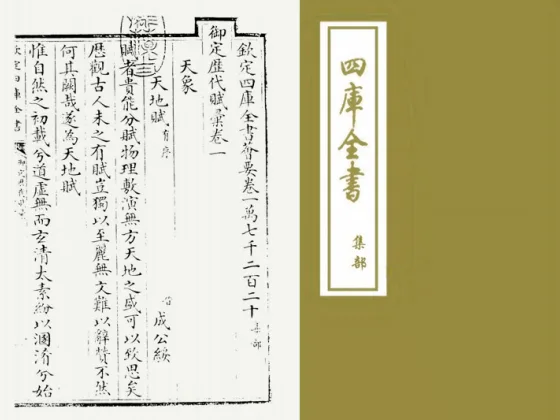 四庫全書
集部
欽定四庫全書薈要卷一萬七千二百二十 集部
御定歷代賦彙卷一
天象
天地賦 有序 晉 成公綏
賦者貴能分賦物理敷演無方天地之盛可以致思矣
歷觀古人未之有賦豈獨以至麗無文難以辭贊不然
何其闕哉遂為天地賦
惟自然之初載兮道虛無而玄清太素紛以溷淆兮始
欽定四庫全書